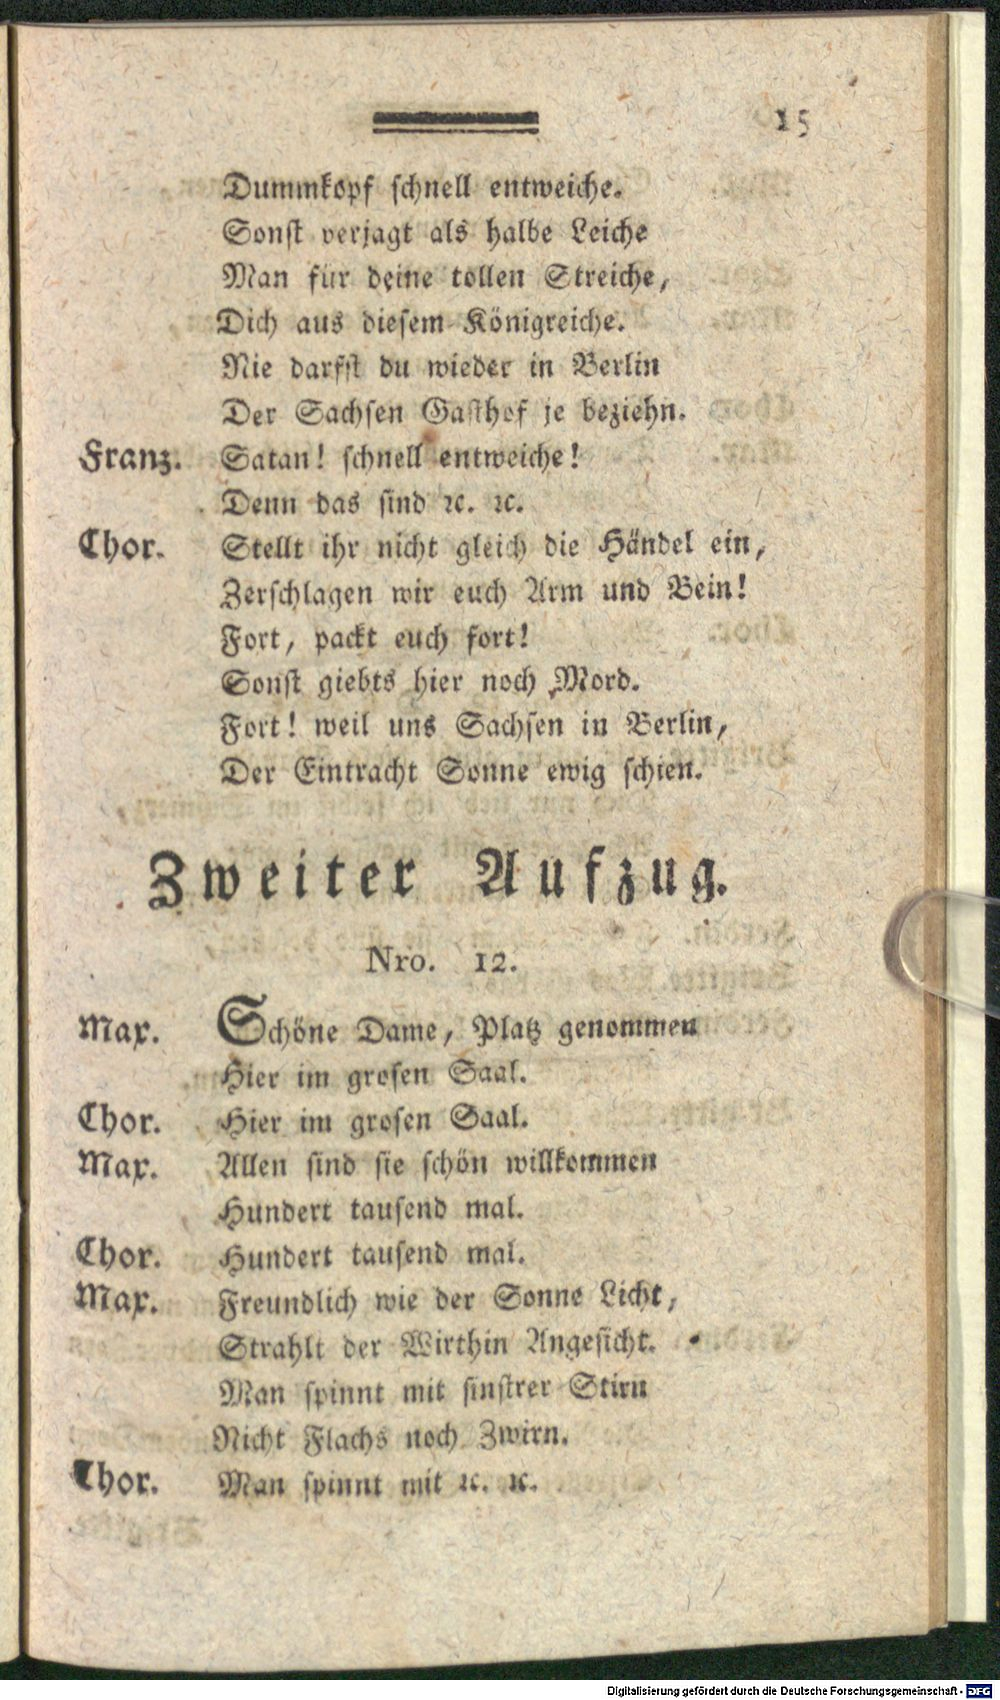 15
Dummkopf schnell entweiche.
Sonst verjagt als halbe Leiche
Man für deine tollen Streiche,
Dich aus diesem Königreiche.
Nie darfst du wieder in Berlin
Der Sachsen Gasthof je beziehn.
Franz. Satan! schnell entweiche!
Denn das sind ꝛc. ꝛc.
Chor. Stellt ihr nicht gleich die Händel ein,
Zerschlagen wir euch Arm und Bein!
Fort, packt euch fort!
Sonst giebts hier noch Mord.
Fort! weil uns Sachsen in Berlin,
Der Eintracht Sonne ewig schien.
Zweiter Aufzug.
Nro. 12.
Max. Schöne Dame, Platz genommen
Hier im grosen Saal.
Chor. Hier im grosen Saal.
Max. Allen sind sie schön willkommen
Hundert tausend mal.
Chor. Hundert tausend mal.
Max. Freundlich wie der Sonne Licht,
Strahlt der Wirthin Angesicht.
Man spinnt mit finstrer Stirn
Nicht Flachs noch Zwirn.
Chor. Man spinnt mit ꝛc. ꝛc.
Digitalisierung gefördert durch die Deutsche Forschungsgemeinschaft - DFG